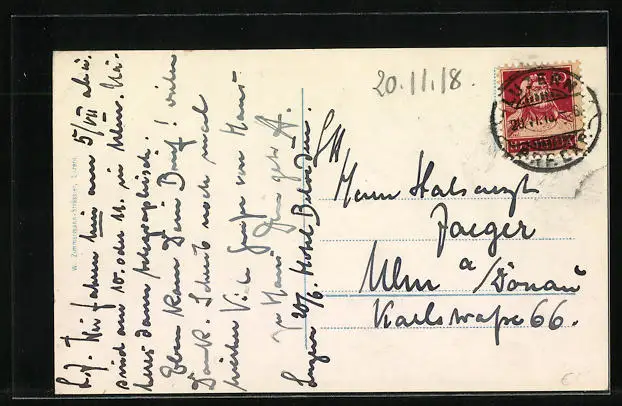 20.11.18.
LUZERN
20.VI.18
L. J. Wir fahren hier am 5/VII ab u.
sind am 10. oder 11. in Ulm. Nä-
heres dann telegraphisch.
Eben kam Dein Brief! vielen
Dank. Schreib noch mal
hierher. Viele Grüsse von Haus
zu Haus Dein getr. A.
Luzern 20/6. Hotel
W. Zimmermann-Strässler, Luzern
Herrn
Jaeger
Ulm a/Donau
Karlstrasse 66.